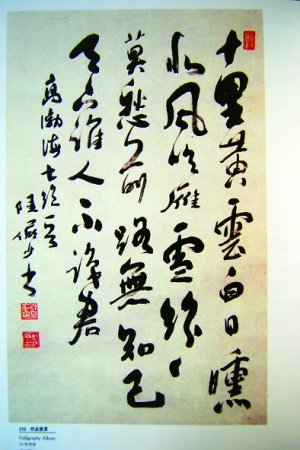 十里黃雲白日曛
北風吹雁雪紛紛
莫愁前路無知己
天下誰人不識君
高渤海七絕一首
陸儼少書
Calligraphy Album